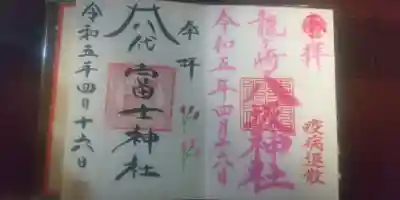 奉拝
疫病退散
龍ケ崎八坂神社
令和五年四月十六日
奉拝
八代富士神社
令和五年四月十六日